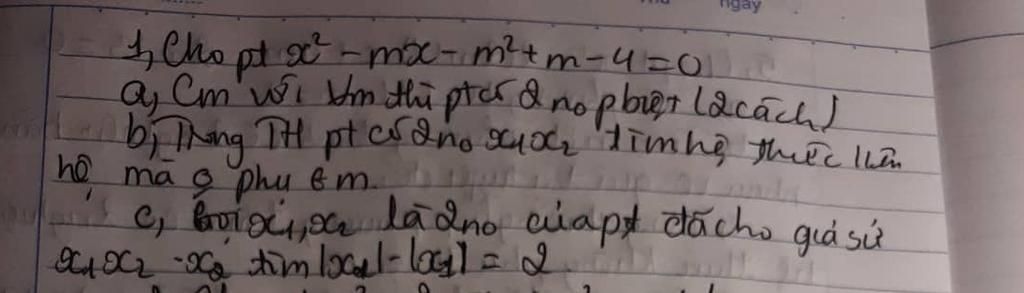 ngày
1, Cho pt x² - mx - m² + m - 4 = 0
a, Cm với ∀m thì pt có 2 no pbiệt (2 cách)
b, Trong TH pt có 2 no x₁ x₂ tìm hệ thức liên
hệ mà phụ m
c, Gọi x₁, x₂ là 2 no của pt đã cho giả sử
x₁ x₂ - x₂ tìm |x₂| - |x₁| = 2